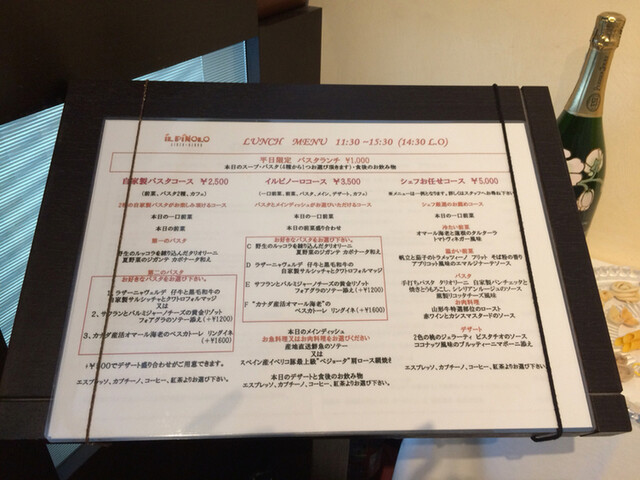 IL PINOLO
LUNCH MENU 11:30－15:30 (14:30 L.O)
平日限定 パスタランチ ¥1,000
本日のスープ・パスタ(4種から1つお選び頂きます)・食後のお飲み物
自家製パスタコース ¥2,500
(前菜、パスタ2種、カフェ)
2種の自家製パスタがお愉しみ頂けるコース
本日の一口前菜
本日の前菜
第一のパスタ
野生のルッコラを練り込んだタリオリーニ
夏野菜のジガンテ カポナータ和え
第二のパスタ
お好きなパスタをお選び下さい。
1, ラザーニャヴェルデ 仔牛と黒毛和牛の
自家製サルシッチャとクワトロフォルマッジ
又は
2, サフランとパルミジャーノチーズの黄金リゾット
フォアグラのソテー添え(＋¥1200)
3, カナダ産活オマール海老のペスカトーレ リングイネ
(＋¥1600)
＋¥500でデザート盛り合わせがご用意できます。
エスプレッソ、カプチーノ、コーヒー、紅茶よりお選び下さい。
イルピノーロコース ¥3,500
(一口前菜、前菜、パスタ、メイン、デザート、カフェ)
パスタとメインディッシュがお選びいただけるコース
本日の一口前菜
本日の前菜盛り合わせ
お好きなパスタをお選び下さい。
C 野生のルッコラを練り込んだタリオリーニ
夏野菜のジガンテ カポナータ和え
D ラザーニャヴェルデ 仔牛と黒毛和牛の
自家製サルシッチャとクワトロフォルマッジ
E サフランとパルミジャーノチーズの黄金リゾット
フォアグラのソテー添え(＋¥1200)
F “カナダ産活オマール海老”の
ペスカトーレ リングイネ(＋¥1600)
本日のメインディッシュ
お魚料理又はお肉料理をお選びください
産地直送鮮魚のソテー
又は
スペイン産イベリコ豚最上級“ベジョータ”肩ロース網焼き
本日のデザートと食後のお飲み物
エスプレッソ、カプチーノ、コーヒー、紅茶よりお選び下さい。
シェフお任せコース ¥5,000
※メニューは一例となります。詳しくはスタッフへお尋ね下さい
シェフ厳選のお薦めコース
本日の一口前菜
冷たい前菜
オマール海老と蓮根のタルターラ
トマトヴィネガー風味
温かい前菜
帆立と茄子のトラメッツィーノ フリット そば粉の香り
アプリコット風味のエマルジナーテソース
パスタ
手打ちパスタ タリオリーニ 自家製パンチェッタと
焼きとうもろこし、シシリアンルージュのソース
燻製リコッタチーズ風味
お肉料理
山形牛特選部位のロースト
赤ワインとカシスマスタードのソース
デザート
2色の桃のジェラーティ ピスタチオのソース
ココナッツ風味のブルッティーニマボーニ添え
エスプレッソ、カプチーノ、コーヒー、紅茶よりお選び下さい。